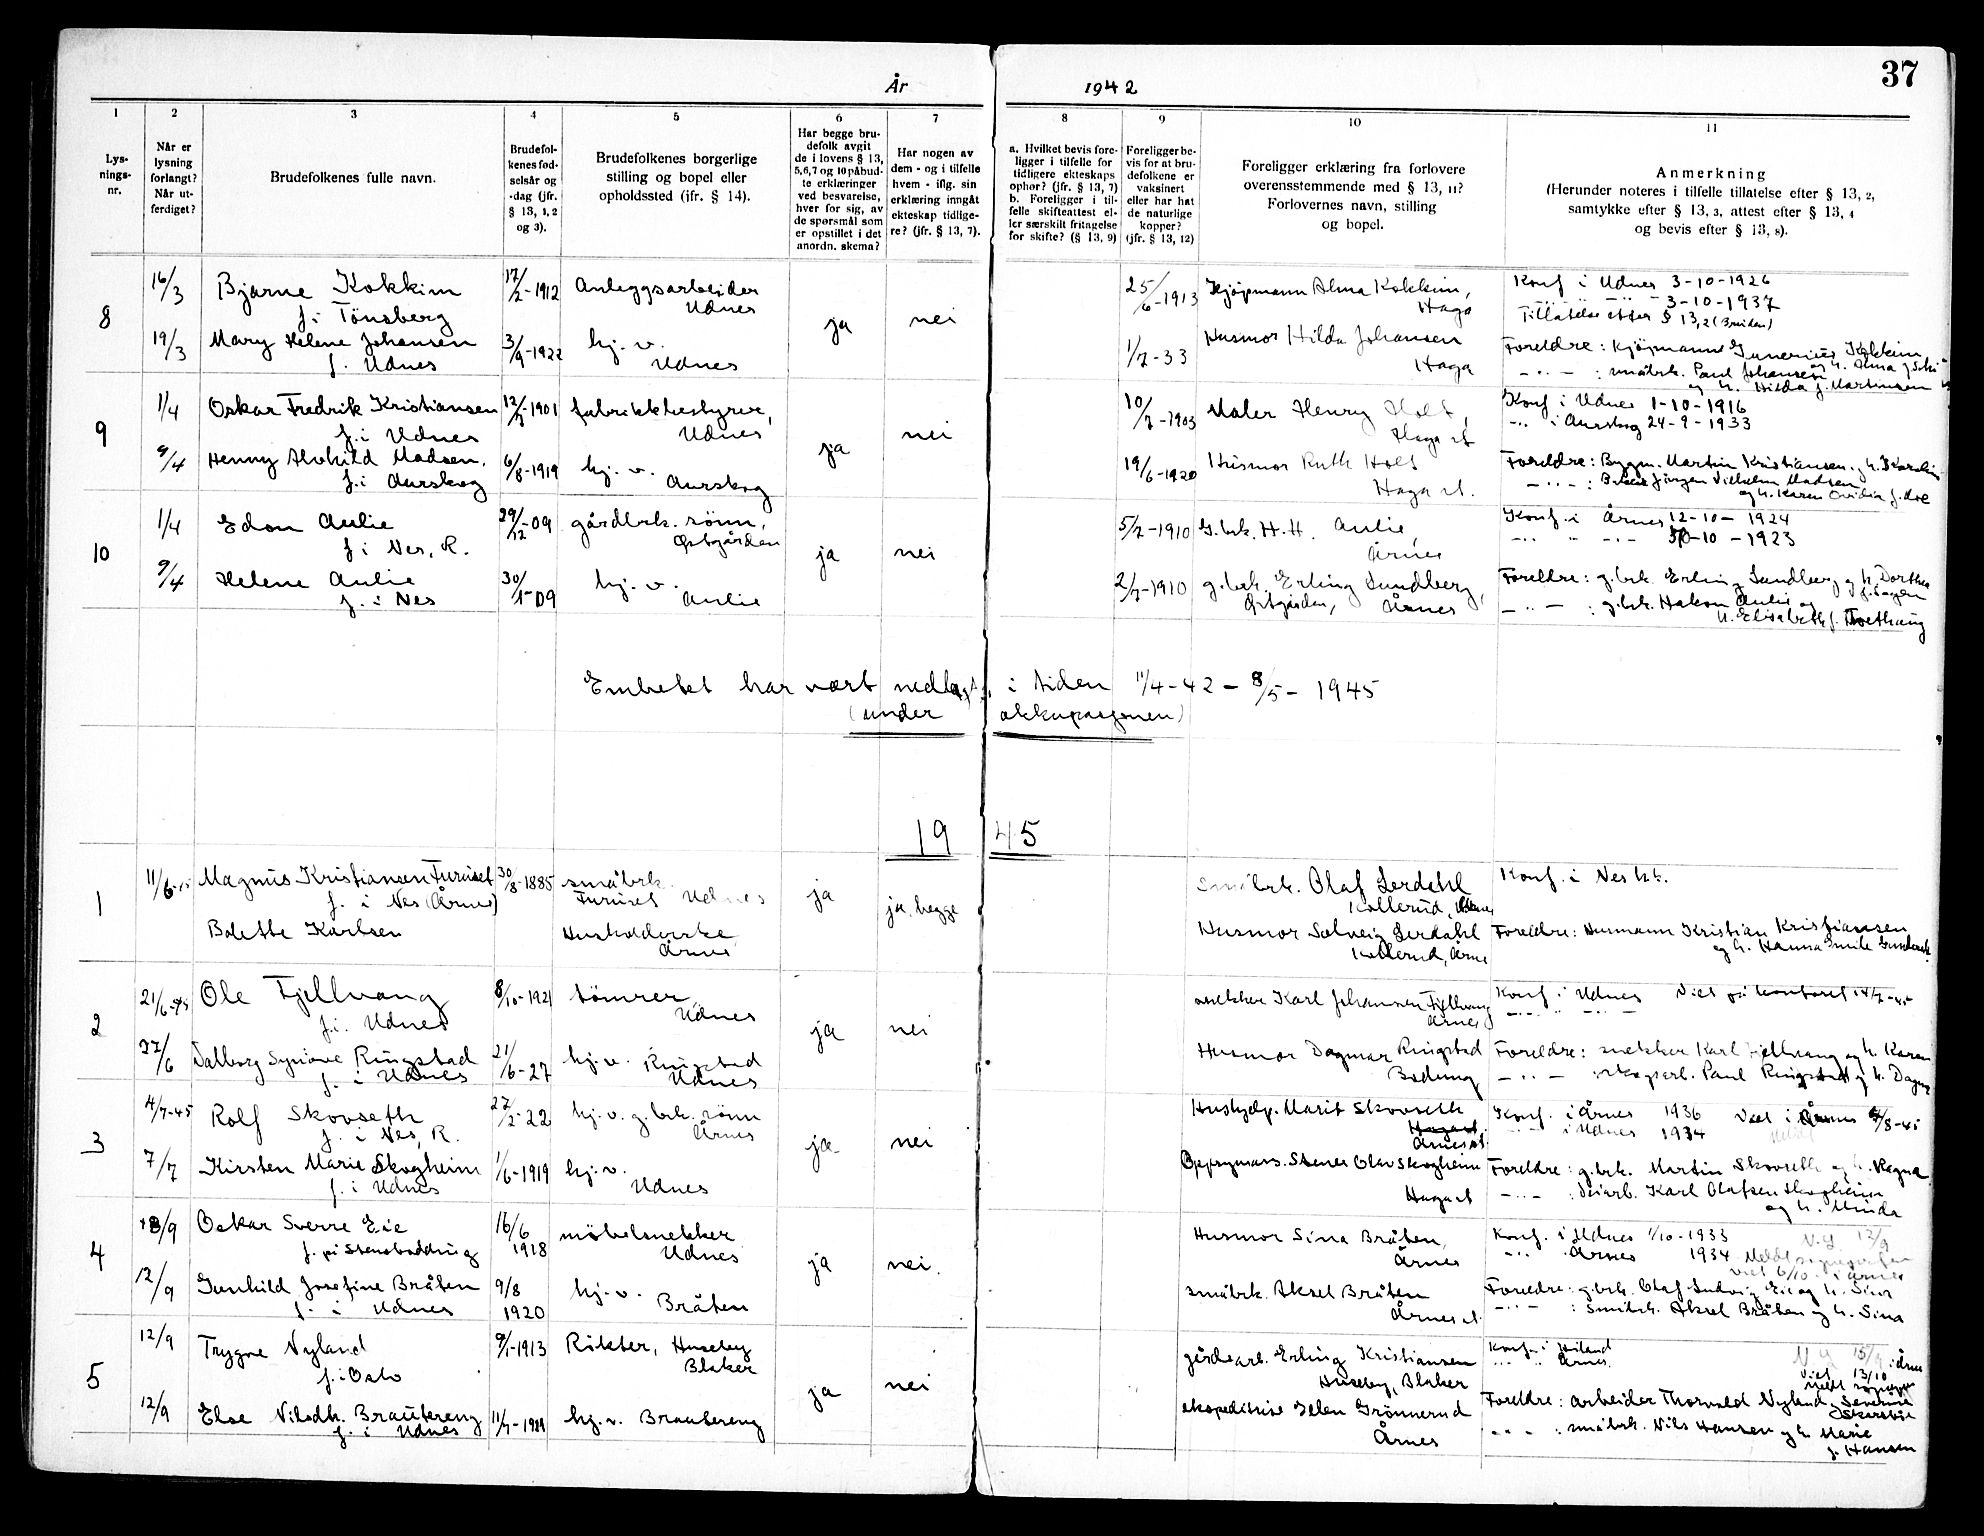 37
År 1942
1 2 3 4 5 6 7 8 9 10 11
Lys-
nings-
nr.
Når er
lysning
forlangt?
Når ut-
ferdiget?
Brudefolkenes fulle navn.
Brudefol-
kenes fød-
selsår og
-dag (jfr.
§ 13, 1, 2
og 3).
Brudefolkenes borgerlige
stilling og bopel eller
opholdssted (jfr. § 14).
Har begge bru-
defolk avgit
de i lovens § 13,
5,6,7 og 10 påbud-
te erklæringer
ved besvarelse,
hver for sig, av
de spørsmål som
er opstillet i det
anordn. skema?
Har nogen av
dem - og i tilfelle
hvem - iflg. sin
erklæring inngått
ekteskap tidlige-
re? (jfr. § 13, 7).
a. Hvilket bevis fore-
ligger i tilfelle for
tidligere ekteskaps
ophør? (jfr. § 13, 7)
b. Foreligger i til-
felle skifteattest el-
ler særskilt fritagelse
for skifte? (§ 13, 9)
Foreligger be-
vis for at bru-
defolkene er
vaksinert
eller har hat
de naturlige
kopper?
(jfr. § 13, 12)
Foreligger erklæring fra forlovere
overensstemmende med § 13, 11?
Forlovernes navn, stilling
og bopel.
Anmerkning
(Herunder noteres i tilfelle tillatelse efter § 13, 2,
samtykke efter § 13, 3, attest efter § 13, 4
og bevis efter § 13, 8).
8 16/3 Bjarne Kokkim 17/2-1912 Anleggsarbeider 25/6-1913 Kjøpmann Alma Kokkim, Konf i Udnes 3-10-1926
f. i Tönsberg Udnes ja nei Haga 3-10-1937
Tillatelse efter § 13,2 (Bruden)
19/3 Mary Helene Johansen 3/9-1922 hj. v. 1/7-33 Husmor Hilda Johansen Foreldre: Kjøpmann Kokkim
f. Udnes Udnes Haga småbrk. Paul Johansen
og h. Hilda f. Martinsen
9 1/4 Oskar Fredrik Kristiansen 12/7-1901 fabrikkbestyrer, 10/7-1903 Maler Henry Holt, Konf. i Udnes 1-10-1916
f. i Udnes Udnes ja nei Haga st i Aurskog 24-9-1933
9/4 Henny Alvhild Madsen, 6/8-1919 hj. v. 19/6-1920 Husmor Ruth Holt Foreldre: Byggm. Martin Kristiansen og h.
f. i Aurskog Aurskog Haga st. Vilhelm Madsen
og h. Karen
10 1/4 Edon Aulie 29/12-09 gårdbrk. sönn, 5/7-1910 G.brk. H. H. Aulie, Konf. i Årnes 12-10-1924
f. i Nes, R. Østgården ja nei Årnes -10-1923
9/4 Helene Aulie 30/1-09 hj. v. 2/7-1910 g.brk. Erling Sundberg, Foreldre: g.brk. Erling Sundberg og h. Dorthea
f. i Nes Aulie Østgården, Årnes g.brk. Hakon Aulie og
h. Elisabeth f.
Embetet har vært nedlagt i tiden 11/4-42 – 8/5-1945
(under okkupasjonen)
1945
1 11/6-45 Magnus Kristiansen Furuset 30/8-1885 småbrk. ja Småbrk. Olaf Lerdahl Konf. i Nes
f. i Nes (Årnes) Furuset Udnes ja, begge Kollerud,
Bolette Karlsen Husholderske Husmor Solveig Lerdahl Foreldre: Husmann Kristian Kristiansen
Årnes Kollerud, Årnes og h. Hanna
2 21/6-45 Ole Fjellvang 8/10-1921 tömrer, snekker Karl Johansen Fjellvang Konf. i Udnes Viet på kontoret 14/7-45
f. i. Udnes Udnes ja nei Årnes
27/6 Synöve Ringstad 21/6-27 hj. v. Ringstad Husmor Dagmar Ringstad Foreldre: snekker Karl Fjellvang og h. Karen
f. i Udnes Udnes Bodung Paul Ringstad og h. Dagny
3 4/7-45 Rolf Skovseth 27/2-22 hj. v. g.brk. sönn Hushjelp. Marit Skovseth Konf. i Årnes 1936 Viet i Årnes /8-45
f. i Nes, R. Årnes ja nei Haga st. Årnes st. i Udnes 1934
7/7 Kirsten Marie Skogheim 1/6-1919 hj. v. Oppsynsm. Olav Skogheim Foreldre: g.brk. Martin Skovseth og h. Ragna
f. i Udnes Udnes Haga st Karl Olafsen Skogheim
og h. Minda
4 /9 Oskar Sverre Eie 16/6 1918 möbelsnekker Husmor Sina Bråten, Konf. i Udnes 1/10-1933
Udnes ja nei. Årnes Årnes 1934
viet 6/10 i Årnes
12/9 Gunhild Josefine Bråten 9/8 1920 hj. v. småbrk. Aksel Bråten Foreldre: g.brk. Olaf Ludvig Eie og h.
f. i Udnes Bråten Årnes st. småbrk. Aksel Bråten og h. Sina
5 12/9 Trygve Nyland 9/1-1913 Rökter, Huseby gårdsarb. Erling Kristiansen Konf. i
f. i Oslo Blaker ja nei Huseby, Blaker Årnes Viet 13/10
12/9 Else Brautereng 11/7-19 hj. v. Brautereng ekspeditrise Ellen Grönnerud Foreldre: arbeider Thorvald Nyland,
f. i Udnes Årnes småbrk. Nils Hansen og h. Marie
f. Hansen